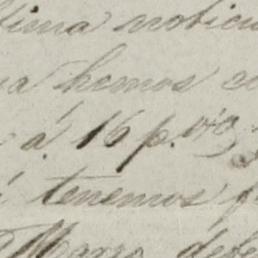 tima notici
a hemos
á. 16 p.
tenemos
Marzo debe